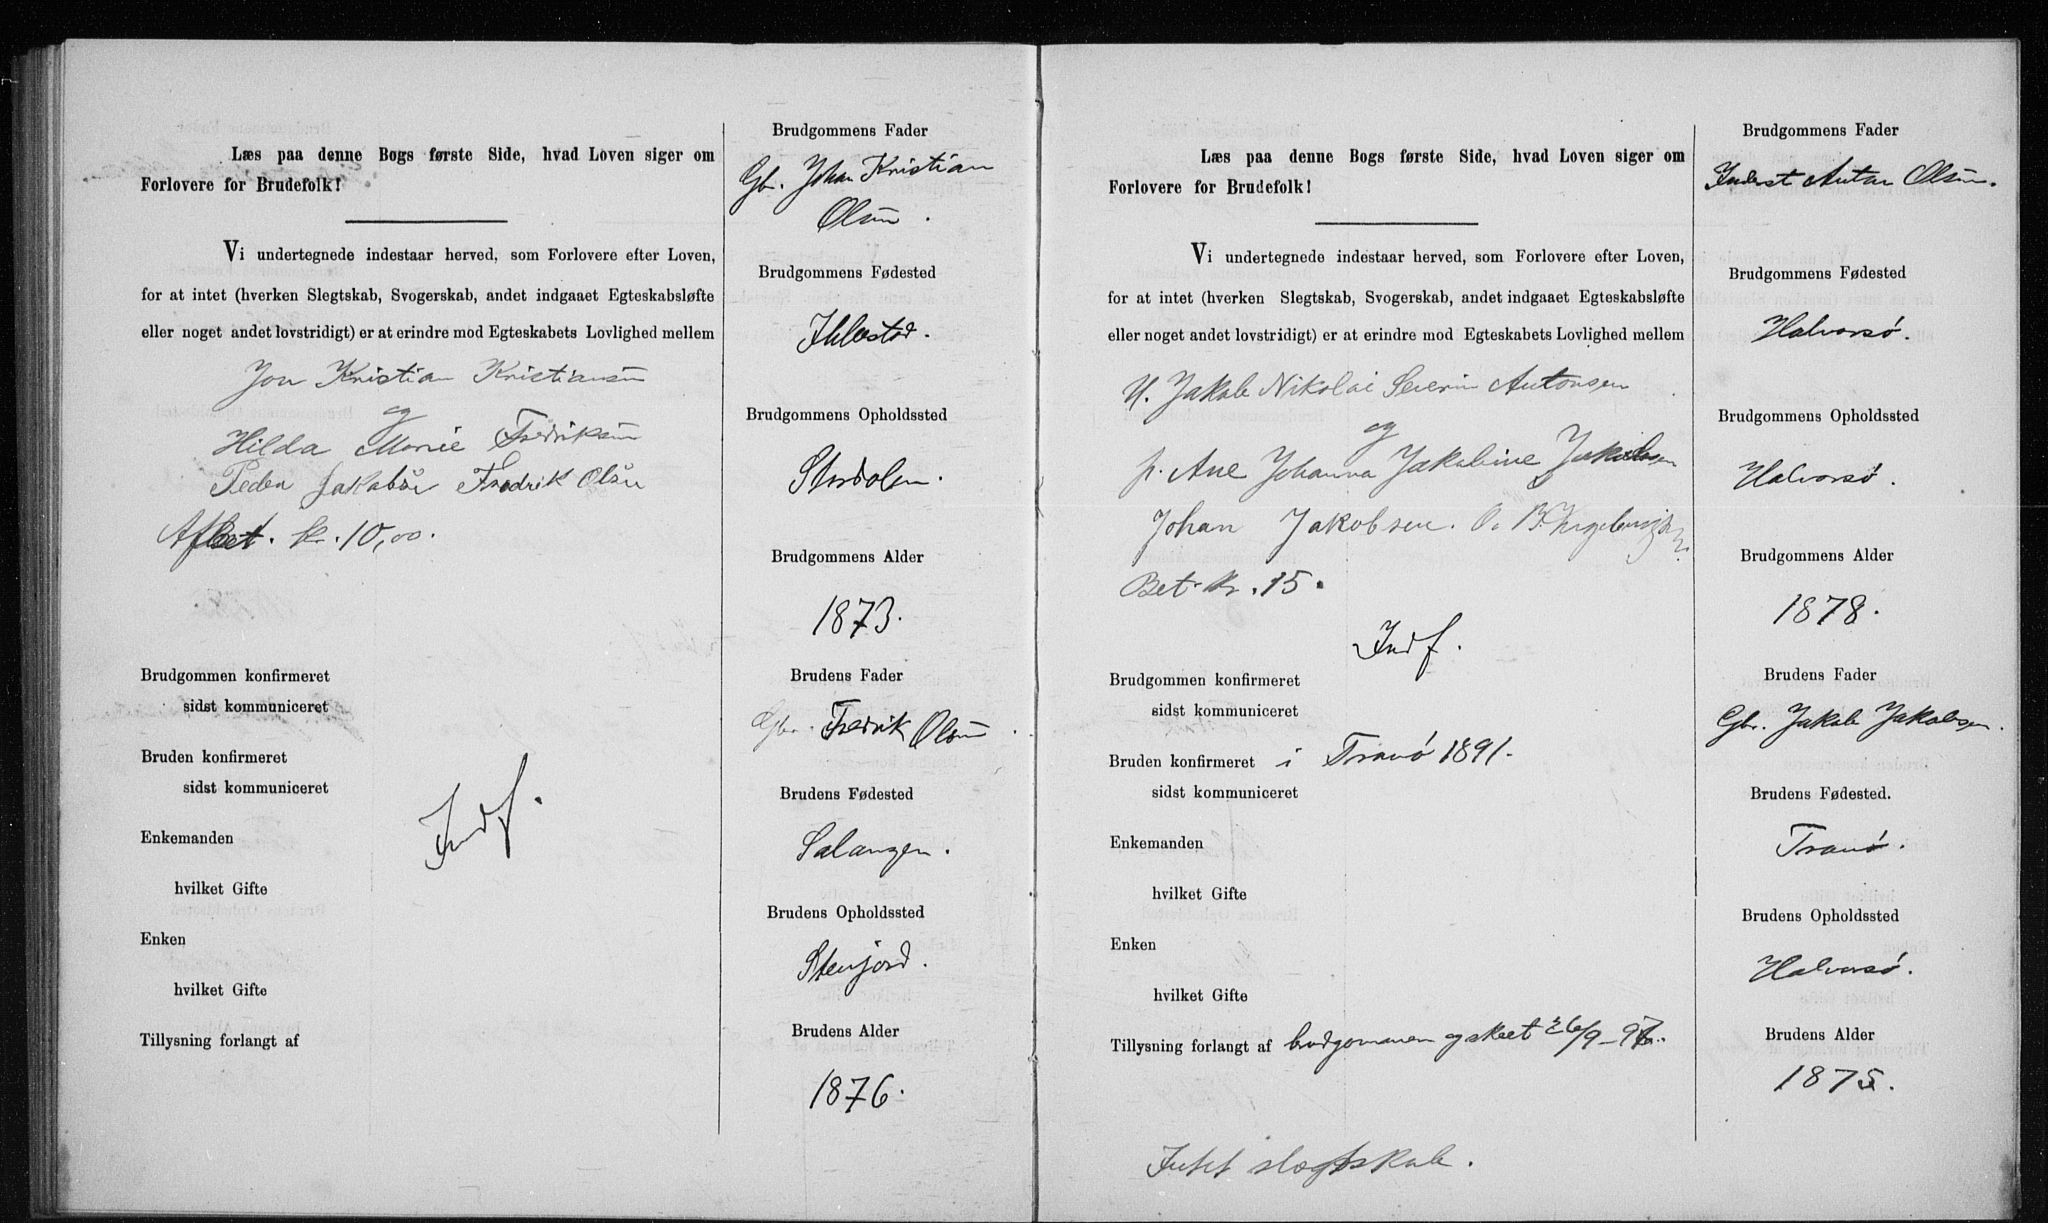 Læs paa denne Bogs første Side, hvad Loven siger om
Forlovere for Brudefolk!
Vi undertegnede indestaar herved, som Forlovere efter Loven,
for at intet (hverken Slegtskab, Svogerskab, andet indgaaet Egteskabsløfte
eller noget andet lovstridigt) er at erindre mod Egteskabets Lovlighed mellem
Jon Kristian Kristiansen
og
Hilda Marie Fredriksen
Peder Jakobsen Fredrik Olsen
Afbet. kr. 10,00.
Brudgommen konfirmeret
sidst kommuniceret
Bruden konfirmeret
sidst kommuniceret
Indf.
Enkemanden
hvilket Gifte
Enken
hvilket Gifte
Tillysning forlangt af
Brudgommens Fader
Gbr. Johan Kristian
Olsen.
Brudgommens Fødested
Ibbestad.
Brudgommens Opholdssted
Stordalen.
Brudgommens Alder
1873.
Brudens Fader
Gbr. Fredrik Olsen.
Brudens Fødested
Salangen.
Brudens Opholdssted
Stenjord.
Brudens Alder
1876.
Læs paa denne Bogs første Side, hvad Loven siger om
Forlovere for Brudefolk!
Vi undertegnede indestaar herved, som Forlovere efter Loven,
for at intet (hverken Slegtskab, Svogerskab, andet indgaaet Egteskabsløfte
eller noget andet lovstridigt) er at erindre mod Egteskabets Lovlighed mellem
U. Jakob Nikolai Severin Antonsen
og
p. Ane Johanna Jakobine Jakobsen
Johan Jakobsen. O. B.
Bet. kr. 15.
Indf.
Brudgommen konfirmeret
sidst kommuniceret
Bruden konfirmeret i Tranø 1891.
sidst kommuniceret
Enkemanden
hvilket Gifte
Enken
hvilket Gifte
Tillysning forlangt af brudgommen og skeet 26/9-97.
Intet slægtskab.
Brudgommens Fader
Inderst Anton Olsen.
Brudgommens Fødested
Halvorsø.
Brudgommens Opholdssted
Halvorsø.
Brudgommens Alder
1878.
Brudens Fader
Gbr. Jakob Jakobsen.
Brudens Fødested.
Tranø.
Brudens Opholdssted
Halvorsø.
Brudens Alder
1875.